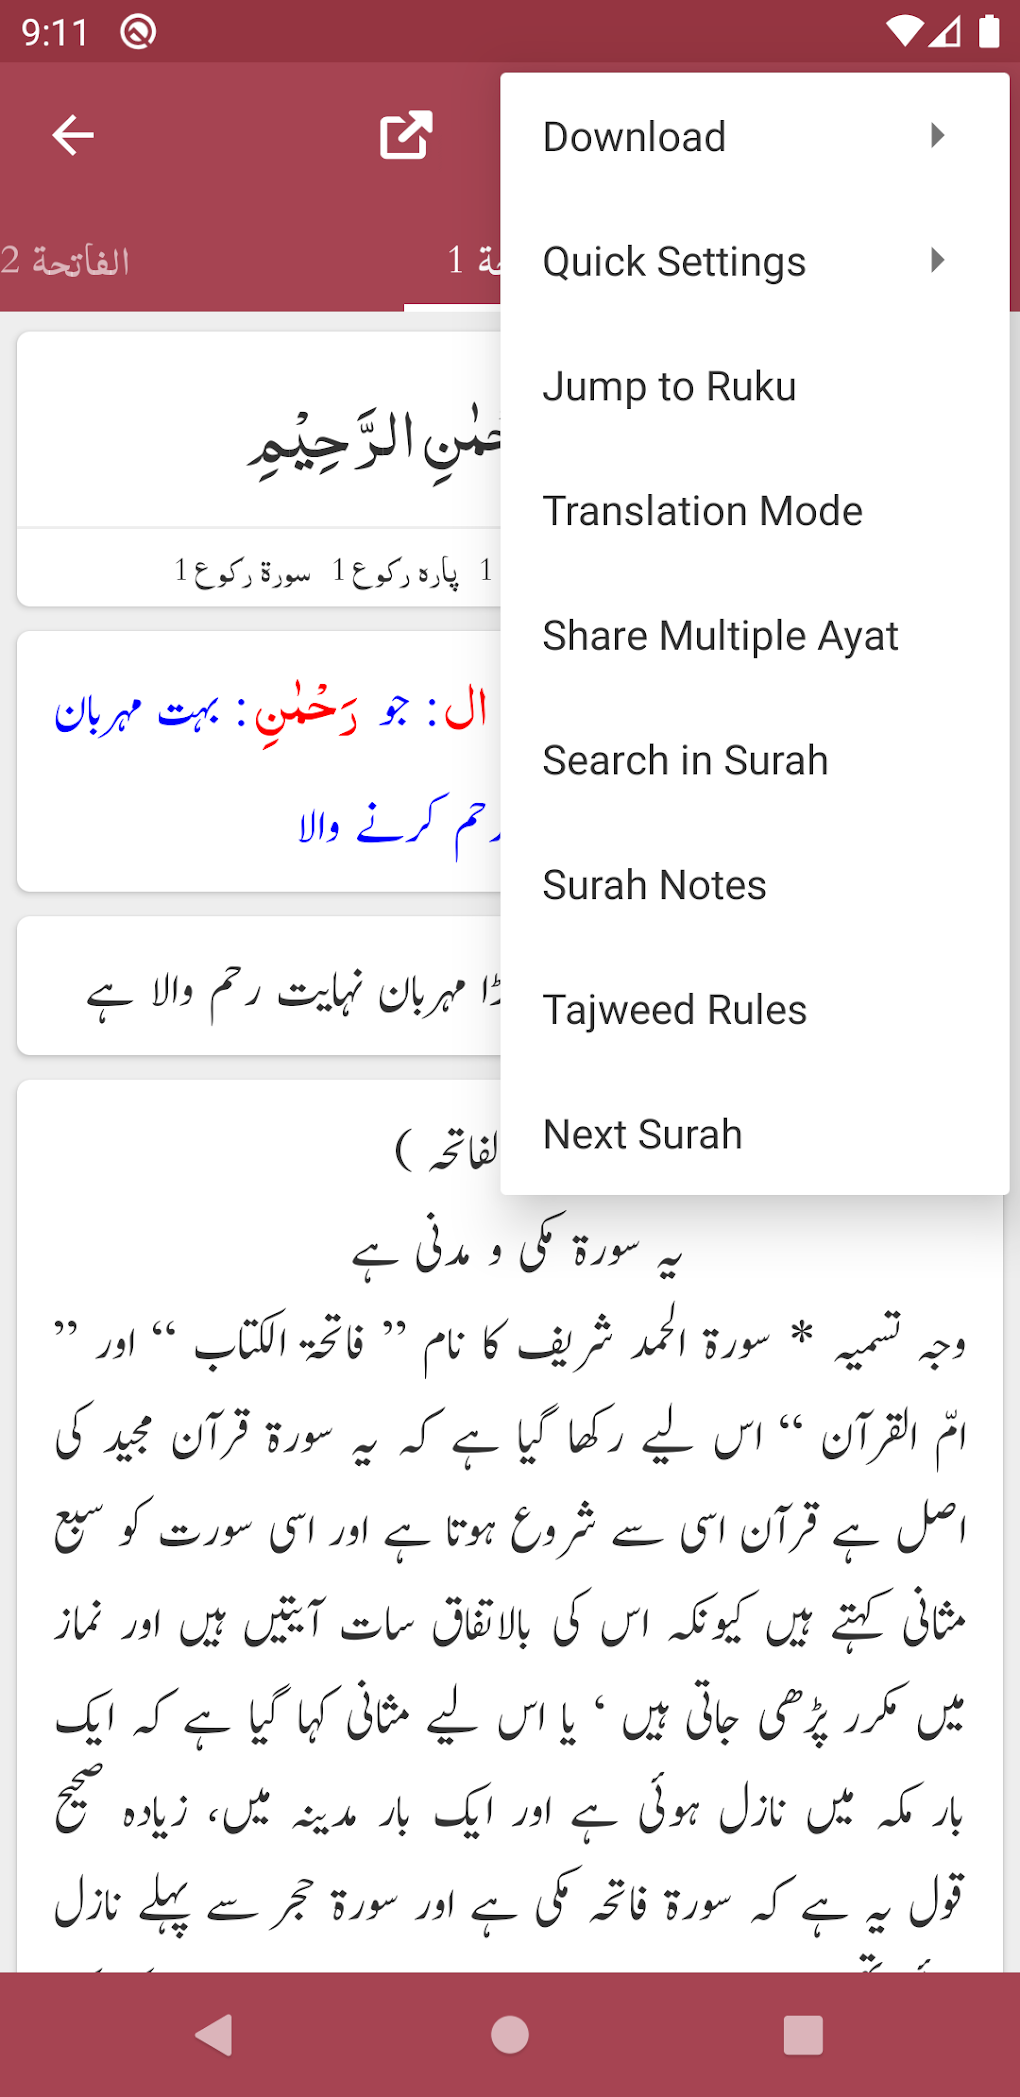 9:11
الفاتحة 2
1
Download
Quick Settings
Jump to Ruku
Translation Mode
Share Multiple Ayat
Search in Surah
Surah Notes
Tajweed Rules
Next Surah
الرَّحِيْمِ
1 پارہ رکوع 1 سورۃ رکوع 1
ال: جو رَحْمٰنِ: بہت مہربان
رحم کرنے والا
مہربان نہایت رحم والا ہے
( الفاتحہ
یہ سورۃ مکی و مدنی ہے
وجہ تسمیہ * سورۃ الحمد شریف کا نام ’’ فاتحۃ الکتاب ‘‘ اور ’’
امّ القرآن ‘‘ اس لیے رکھا گیا ہے کہ یہ سورۃ قرآن مجید کی
اصل ہے قرآن اسی سے شروع ہوتا ہے اور اسی سورت کو سبع
مثانی کہتے ہیں کیونکہ اس کی بالاتفاق سات آیتیں ہیں اور نماز
میں مکرر پڑھی جاتی ہیں ‘ یا اس لیے مثانی کہا گیا ہے کہ ایک
بار مکہ میں نازل ہوئی ہے اور ایک بار مدینہ میں، زیادہ صحیح
قول یہ ہے کہ سورۃ فاتحہ مکی ہے اور سورۃ حجر سے پہلے نازل